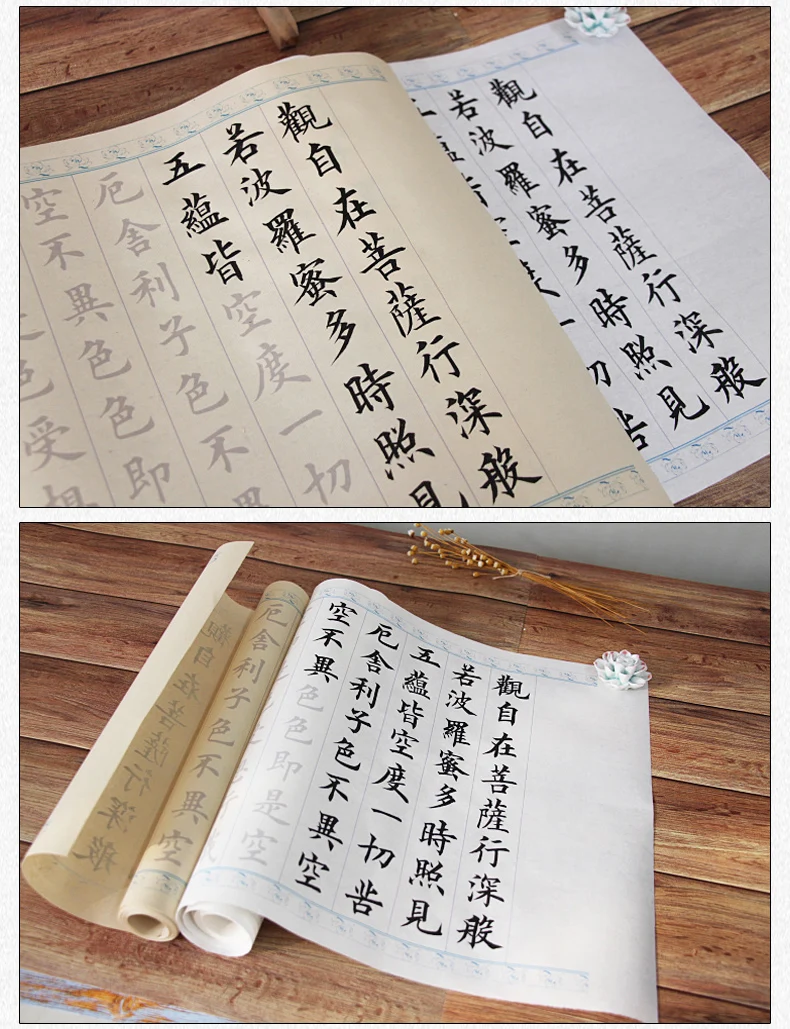 觀自在菩薩行深般
若波羅蜜多時照見
切苦
觀自在菩薩行深般
若波羅蜜多時照見
五蘊皆空度一切
厄舍利子色不異
空不異色色即
色受想
觀自在菩薩行深般
若波羅蜜多時照見
五蘊皆空度一切苦
厄舍利子色不異空
空不異色色即是空
厄舍利子色不異空
觀自在菩薩行深般